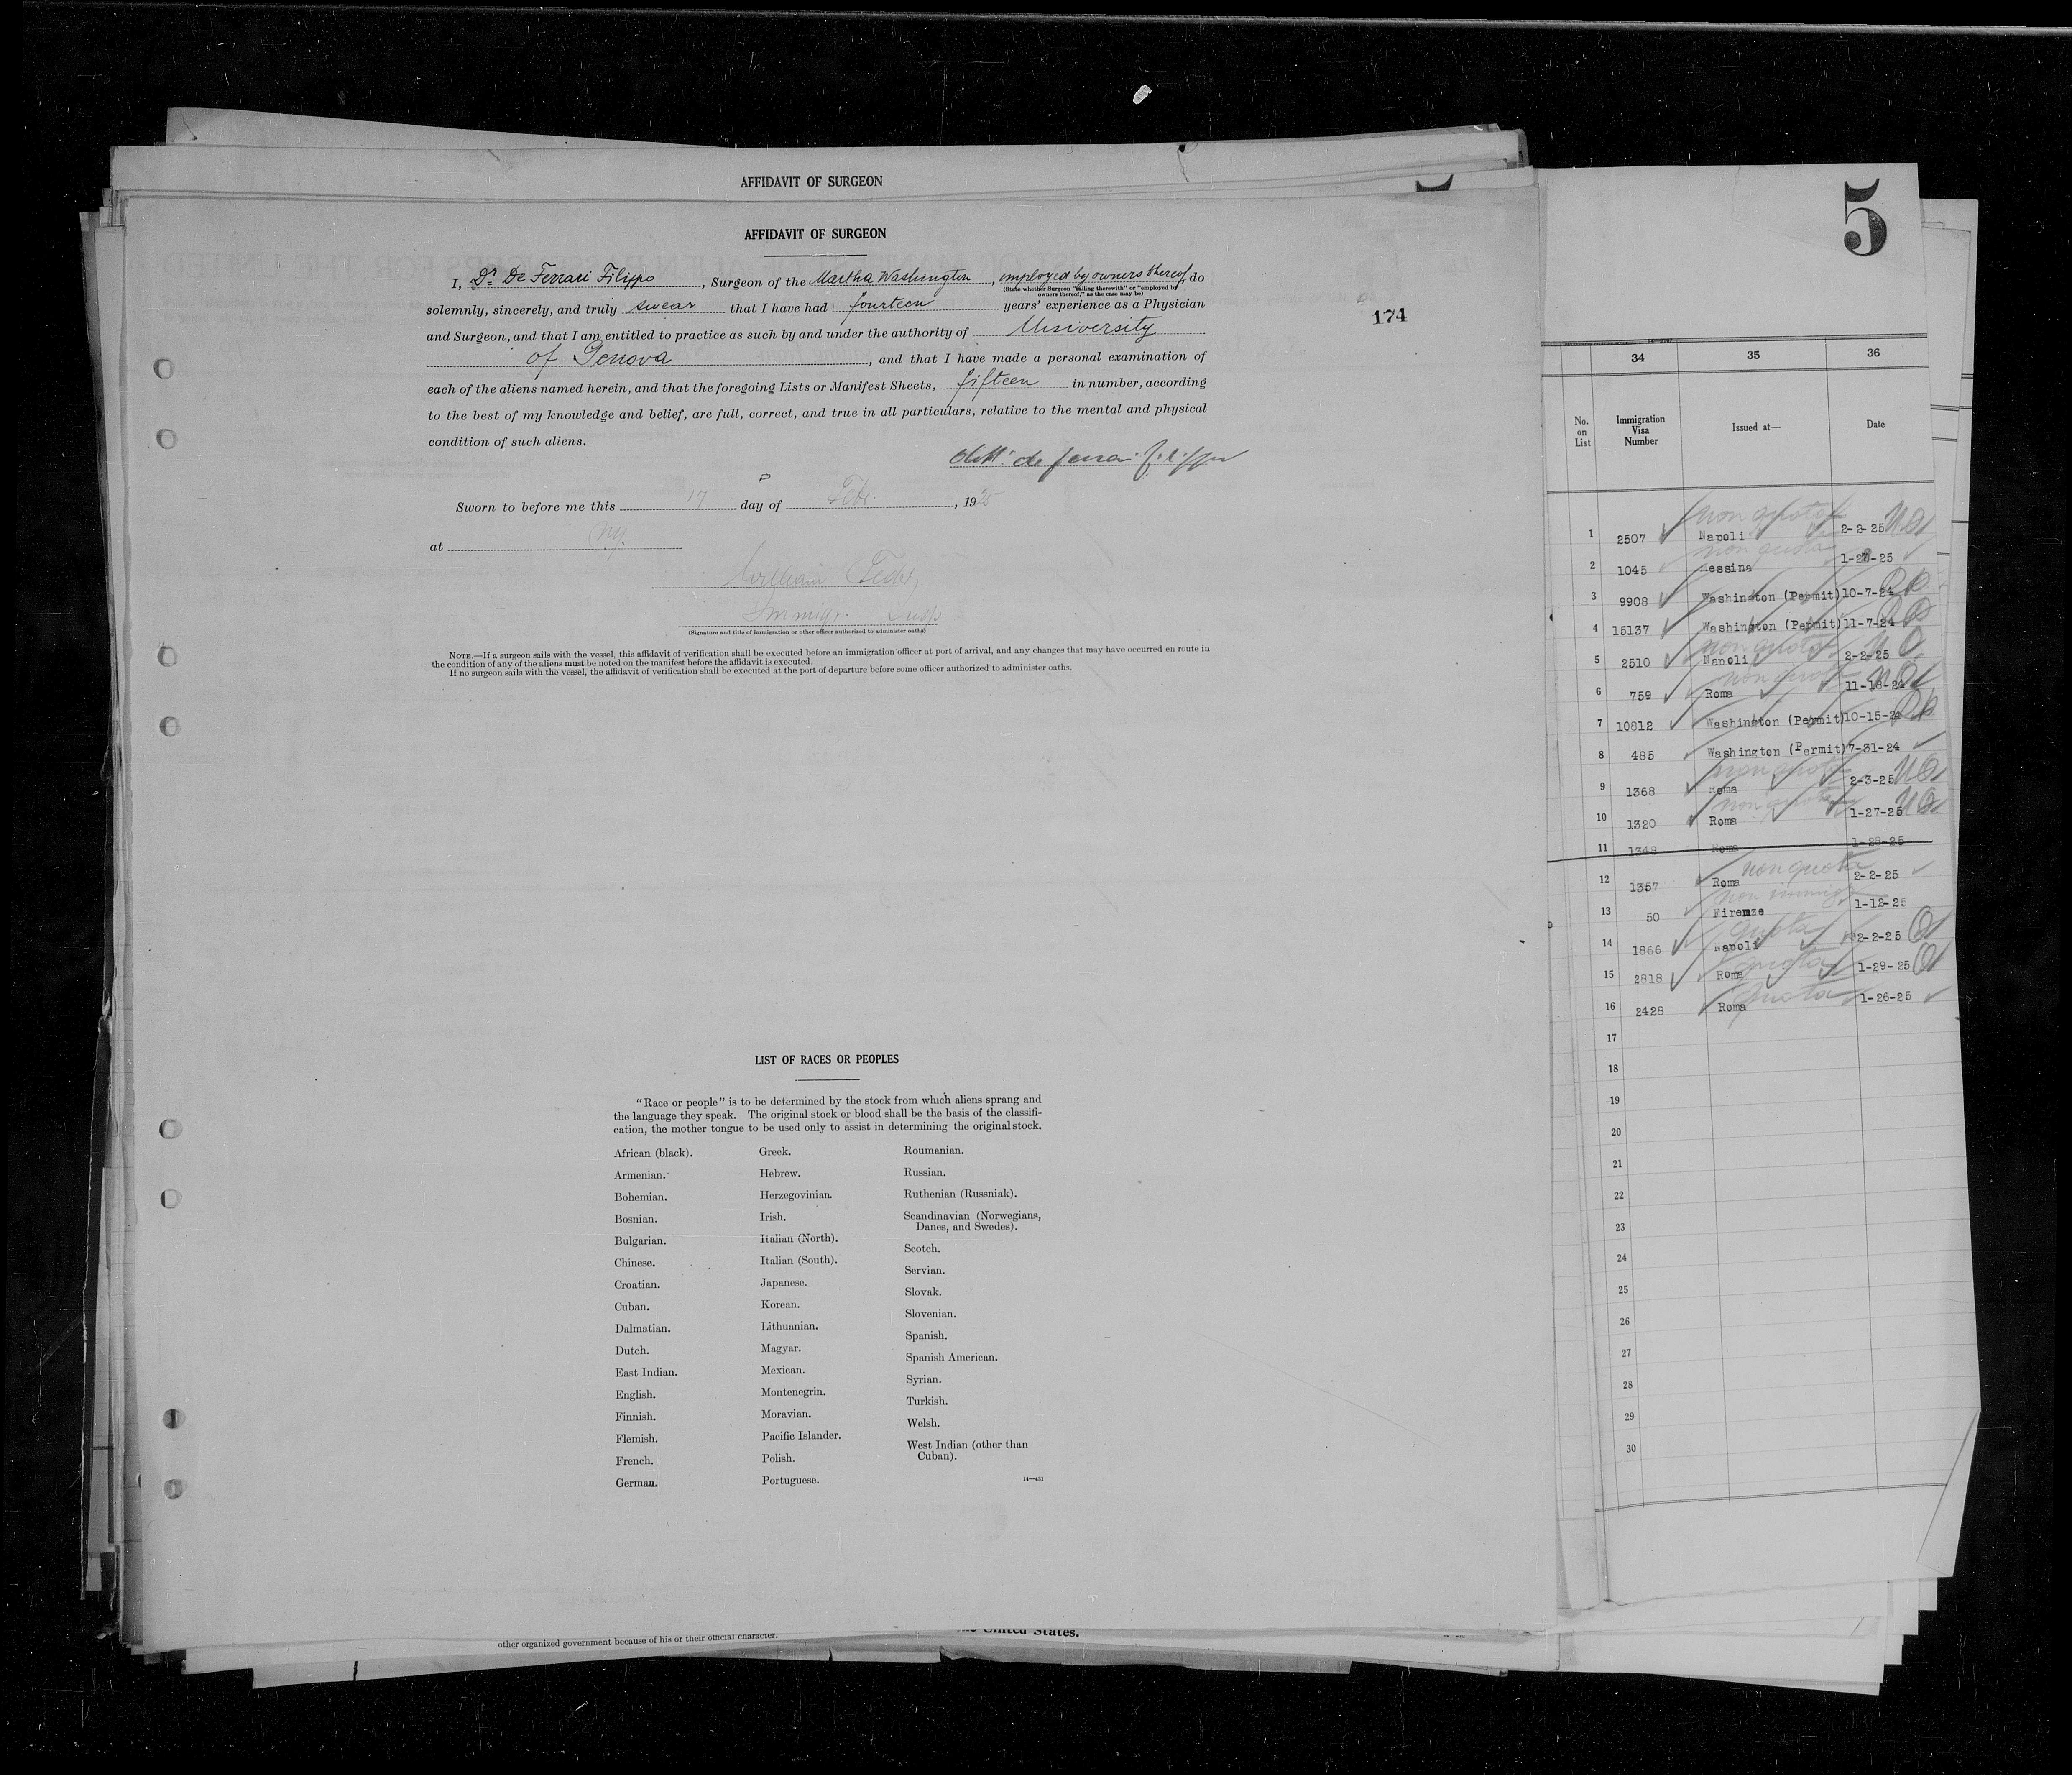 AFFIDAVIT OF SURGEON
AFFIDAVIT OF SURGEON
I, Dr. De Ferrari Filippo, Surgeon of the Martha Washington, employed by owners thereof, do
(State whether Surgeon "sailing therewith" or "employed by owners thereof," as the case may be)
solemnly, sincerely, and truly swear that I have had fourteen years' experience as a Physician
and Surgeon, and that I am entitled to practice as such by and under the authority of University
of Genova, and that I have made a personal examination of
each of the aliens named herein, and that the foregoing Lists or Manifest Sheets, fifteen in number, according
to the best of my knowledge and belief, are full, correct, and true in all particulars, relative to the mental and physical
condition of such aliens.
Dott. de Ferrari Filippo
Sworn to before me this 17 day of Feb., 1925
at NY.
William
Immigr. Insp
(Signature and title of immigration or other officer authorized to administer oaths)
NOTE.—If a surgeon sails with the vessel, this affidavit of verification shall be executed before an immigration officer at port of arrival, and any changes that may have occurred en route in
the condition of any of the aliens must be noted on the manifest before the affidavit is executed.
If no surgeon sails with the vessel, the affidavit of verification shall be executed at the port of departure before some officer authorized to administer oaths.
174
LIST OF RACES OR PEOPLES
"Race or people" is to be determined by the stock from which aliens sprang and
the language they speak. The original stock or blood shall be the basis of the classifi-
cation, the mother tongue to be used only to assist in determining the original stock.
African (black).
Armenian.
Bohemian.
Bosnian.
Bulgarian.
Chinese.
Croatian.
Cuban.
Dalmatian.
Dutch.
East Indian.
English.
Finnish.
Flemish.
French.
German.
Greek.
Hebrew.
Herzegovinian.
Irish.
Italian (North).
Italian (South).
Japanese.
Korean.
Lithuanian.
Magyar.
Mexican.
Montenegrin.
Moravian.
Pacific Islander.
Polish.
Portuguese.
Roumanian.
Russian.
Ruthenian (Russniak).
Scandinavian (Norwegians,
Danes, and Swedes).
Scotch.
Servian.
Slovak.
Slovenian.
Spanish.
Spanish American.
Syrian.
Turkish.
Welsh.
West Indian (other than
Cuban).
14—431
other organized government because of his or their official character.
United States.
5
34 35 36
No. on List Immigration Visa Number Issued at— Date
non quota
1 2507 Napoli 2-2-25
non quota
2 1045 Messina 1-27-25
3 9908 Washington (Permit) 10-7-24
4 15137 Washington (Permit) 11-7-24
non quota
5 2510 Napoli 2-2-25
non quota
6 759 Roma 11-18-24
7 10812 Washington (Permit) 10-15-24
8 485 Washington (Permit) 7-31-24
non quota
9 1368 Roma 2-3-25
non quota
10 1320 Roma 1-27-25
11 1348 Roma 1-28-25
non quota
12 1357 Roma 2-2-25
non immigr
13 50 Firenze 1-12-25
quota
14 1866 Napoli 2-2-25
quota
15 2818 Roma 1-29-25
quota
16 2428 Roma 1-26-25
17
18
19
20
21
22
23
24
25
26
27
28
29
30